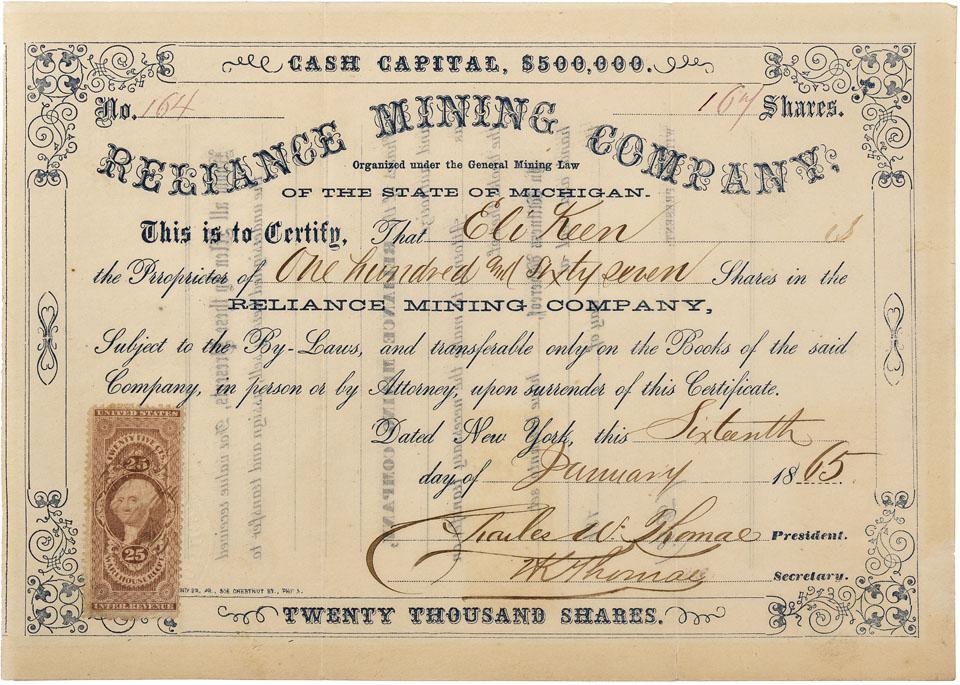 CASH CAPITAL, $500,000.
No. 164
167 Shares.
RELIANCE MINING COMPANY,
Organized under the General Mining Law
OF THE STATE OF MICHIGAN.
This is to Certify, That Eli Keen is
the Proprietor of One hundred and Sixty seven Shares in the
RELIANCE MINING COMPANY,
Subject to the By-Laws, and transferable only on the Books of the said
Company, in person or by Attorney, upon surrender of this Certificate.
Dated New York, this Sixteenth
day of January 1865.
Charles W. Thomae President.
Thomae Secretary.
UNITED STATES
TWENTY FIVE CENTS
25
25
WAREHOUSE
INTER. REVENUE
JR., 306 CHESTNUT ST.,
TWENTY THOUSAND SHARES.